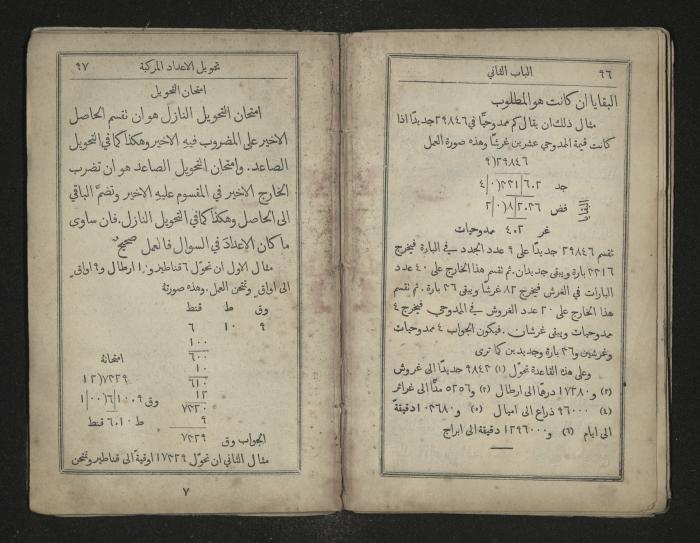 ٩٦ الباب الثاني
البقايا ان كانت هو المطلوب
مثال ذلك ان يقال كم ممدوحيًا في ٢٩٨٤٦ جديدًا اذا
كانت قيمة المدوحي عشرين غرشًا وهذه صورة العمل
٩)٢٩٨٤٦
جد ٤(٠)٣٣١|٦.٢
فض ٢(٠)٨|٢.٣٦
البقايا
غر ٤.٢ ممدوحيات
تقسم ٢٩٨٤٦ جديدًا على ٩ عدد الجدد في البارة فيخرج
٣٣١٦ بارة ويبقى جديدان. ثم تقسم هذا الخارج على ٤٠ عدد
البارات في الغرش فيخرج ٨٢ غرشًا ويبقى ٣٦ بارة. ثم تقسم
هذا الخارج على ٢٠ عدد الغروش في المدوحي فيخرج ٤
ممدوحيات ويبقى غرشان. فيكون الجواب ٤ ممدوحيات
وغرشين و٣٦ بارة وجديدين كما ترى
وعلى هذه القاعدة تحوّل (١) ٩٨٤٣ جديدًا الى غروش
(٢) و١٧٢٨٠ درهمًا الى ارطال (٣) و٥٢٥٦ مدًّا الى غرائر
(٤) ٩٦٠٠٠ ذراع الى اميال (٥) و١٠٣٦٨٠ دقيقة
الى ايام (٦) و١٢٩٦٠٠٠ دقيقة الى ابراج
تحويل الاعداد المركبة ٩٧
امتحان التحويل
امتحان التحويل النازل هو ان تقسم الحاصل
الاخير على المضروب فيه الاخير وهكذا كما في التحويل
الصاعد. وامتحان التحويل الصاعد هو ان تضرب
الخارج الاخير في المقسوم عليه الاخير وتضمّ الباقي
الى الحاصل وهكذا كما في التحويل النازل. فان ساوى
ما كان الاعداد في السوال فالعمل صحيحٌ
مثال الاول ان تحوّل ٦ قناطير و١٠ ارطال و٩ اواقٍ
الى اواقٍ وتمتحن العمل. وهذه صورته
وق ط قنط
٩ ١٠ ٦
١٠٠
٦٠٠
١٠
٦١٠
١٢
٧٣٢٠
٩
الجواب وق ٧٣٢٩
امتحانهُ
١٢)٧٣٢٩
وق ١(٠٠)٦|١٠.٩
ط ٦.١٠ قنط
مثال الثاني ان تحوّل ١٧٣٢٩ اوقية الى قناطير وتمتحن
٧